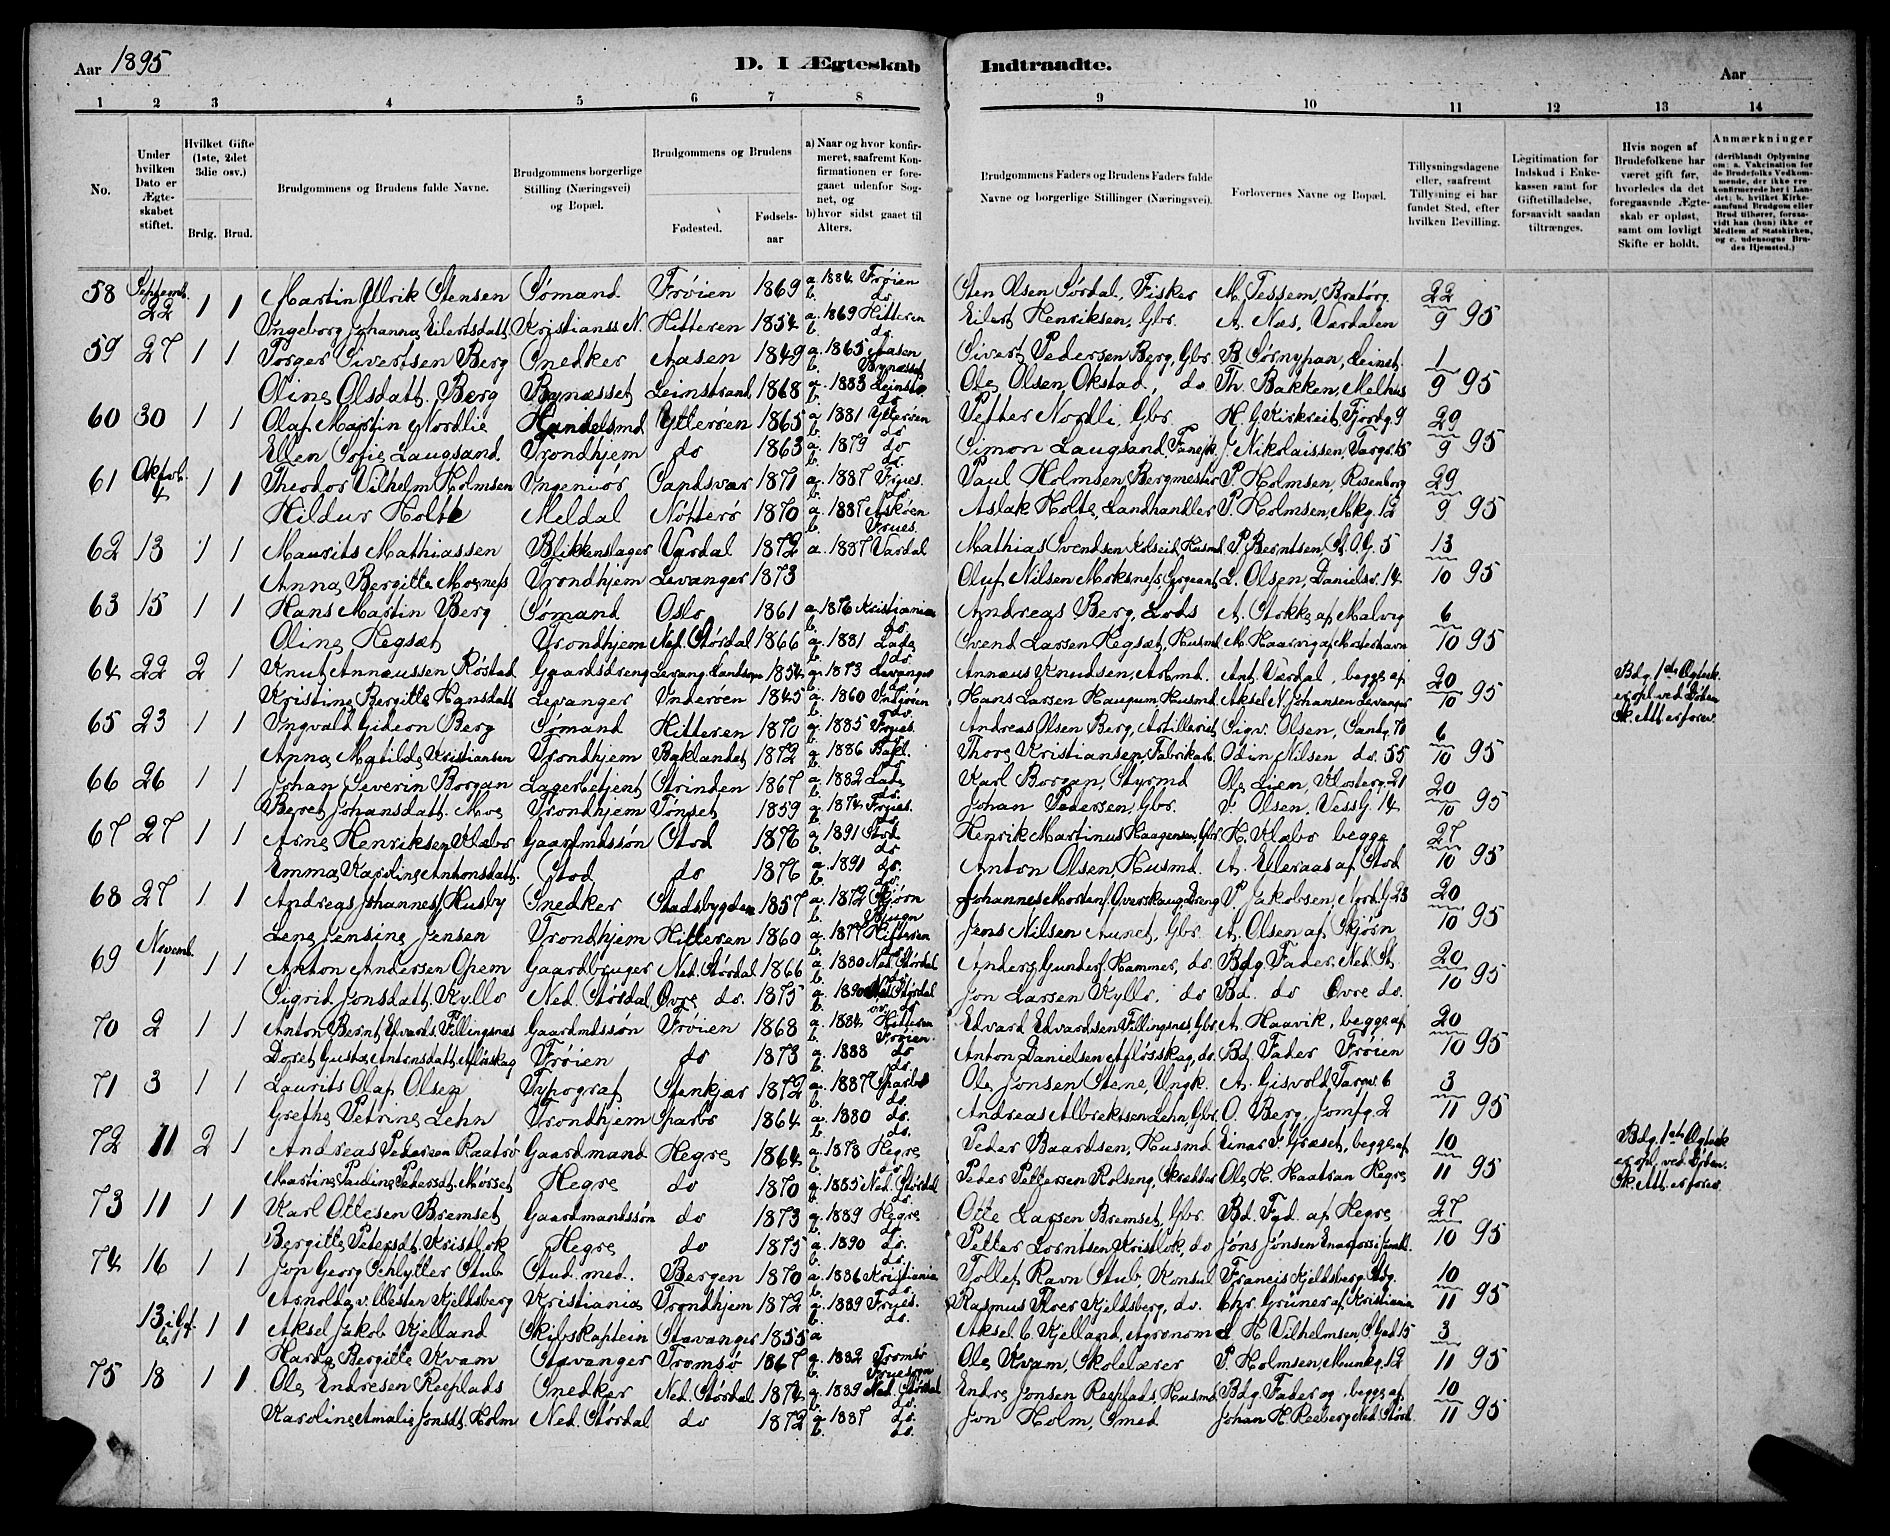 Aar 1895
D. I Ægteskab Indtraadte.
Aar
1 2 3 4 5 6 7 8 9 10 11 12 13 14
No.
Under hvilken Dato er Ægteskabet stiftet.
Hvilket Gifte (1ste, 2det 3die osv.)
Brdg. Brud.
Brudgommens og Brudens fulde Navne.
Brudgommens borgerlige Stilling (Næringsvei) og Bopæl.
Brudgommens og Brudens
Fødested. Fødselsaar
a) Naar og hvor konfirmeret, saafremt Konfirmationen er foregaaet udenfor Sognet, og
b) hvor sidst gaaet til Alters.
Brudgommens Faders og Brudens Faders fulde Navne og borgerlige Stillinger (Næringsvei).
Forlovernes Navne og Bopæl.
Tillysningsdagene eller, saafremt Tillysning ei har fundet Sted, efter hvilken Bevilling.
Legitimation for Indskud i Enkekassen samt for Giftetilladelse, forsaavidt saadan tiltrænges.
Hvis nogen af Brudefolkene har været gift før, hvorledes da det foregaaende Ægteskab er opløst, samt om lovligt Skifte er holdt.
Anmærkninger
58 Septemb. 22 1 1 Martin Ulrik Stensen Sømand Frøien 1869 a. 1884 Frøien b. do. Sten Olsen Sørdal, Fisker M. Tessem, Bratørg. 22/9 95
Ingeborg Johanna Eilertsdatt. Kristianss N. Hitteren 1854 a. 1869 Hitteren b. do. Eilert Henriksen, Gbr. A. Næs, Værdalen
59 27 1 1 Torger Sivertsen Berg Snedker Aasen 1849 a. 1865 Aasen b. Bynæsset Sivert Pedersen Berg, Gbr. B. Sørnypan, Leinst. 1/9 95
Oline Olsdatt. Berg Bynæsset Leinstrand 1868 a. 1883 Leinstr. b. do. Ole Olsen Okstad, do. Th. Bakken, Melhus
60 30 1 1 Olaf Martin Nordlie Handelsmd Ytterøen 1865 a. 1881 Ytterøen b. do. Petter Nordli Gbr. H. G. Kirkreit, Fjordg. 9 29/9 95
Ellen Sofie Laugsand Trondhjem do 1863 a. 1879 do b. do. Simon Laugsand, J. Nikolaissen, Torgr. 15
61 Oktob. 4 1 1 Theodor Vilhelm Holmsen Ingeniør Sandsvær 1871 a. 1887 Frues. b. do. Paul Holmsen, Bergmester P. Holmsen, Rosenborg 29/9 95
Hildur Holte Meldal Nøtterø 1870 a. 1887 Askøen b. Frues. Aslak Holte, Landhandler P. Holmsen, Mkg. 12
62 13 1 1 Maurits Mathiassen Blikkenslager Vardal 1872 a. 1887 Vardal Mathias Svendsen Kolseid, Husmd P. Berntsen, St. O. G. 5 13/10 95
Anna Bergitte Moxness Trondhjem Levanger 1873 Oluf Nilsen Moksness, Sergeant L. Olsen, Danielsv. 14
63 15 1 1 Hans Martin Berg Sømand Oslo 1861 a. 1876 Kristiania b. do. Andreas Berg, Lods A. Stokke af Malvig 6/10 95
Oline Hegsæt Trondhjem Ned. Størdal 1866 a. 1881 Lade b. do. Svend Larsen Hegsæt, Husmd M. Haarvig af Mosterhavn
64 22 2 1 Knut Annæussen Rostad Gaardsdreng Levang. Landsogn 1854 a. 1873 Levanger b. do. Annæus Knudsen, Arb.md. Ant. Værdal, begge af 20/10 95 Bdg. 1ste Ægtesk. er opl. ved Døden Sk. Att. er forev.
Kristine Bergitte Hansdatt Levanger Inderøen 1845 a. 1860 Inderøen b. do. Hans Larsen Haugum, Husmd. Aksel N. Johansen Levanger
65 23 1 1 Ingvald Gideon Berg Sømand Hitteren 1870 a. 1885 Frues. b. do. Andreas Olsen Berg, Artillerist Sigv. Olsen, Sandg. 70 6/10 95
Anna Matilde Kristiansen Trondhjem Baklandet 1872 a. 1886 Bakl. b. do. Thore Kristiansen, Fabrikarb. Odin Nilsen do. 55
66 26 1 1 Johan Severin Borgan Lagerbetjent Strinden 1867 a. 1882 Lade b. do. Karl Borgan, Styrmd Ole Lien, Klosterg. 21 20/10 95
Beret Johansdatt. Moe Trondhjem Tønset 1859 a. 1874 Frues. b. do. Johan Pedersen, Gbr. J. Olsen, Vess G. 14
67 27 1 1 Arne Henriksen Klæbo Gaardmdssøn Stod 1876 a. 1891 Stod b. do. Henrik Martinus Haagensen, Gbr H. Klæbo begge 27/10 95
Emma Karoline Antonsdatt. Stod do 1876 a. 1891 do. b. do. Anton Olsen, Husmd. A. Elleraas af Stod
68 27 1 1 Andreas Johanness. Husby Snedker Stadsbygden 1857 a. 1872 Skjørn b. Bjugn Johannes Mortens. Overskaug, Dreng P. Jakobsen, Nord. G. 23 20/10 95
Lene Jensine Jensen Trondhjem Hitteren 1860 a. 1877 Hitteren b. do. Jens Nilsen Aunet, Gbr. A. Olsen af Skjørn
69 Novemb. 1 1 1 Anton Andersen Opem Gaardbruger Ned. Størdal 1866 a. 1880 Ned. Størdal b. do. Anders Gunders. Hammer, do. Bdg. Fader. Ned. St. 20/10 95
Sigrid Jonsdatt. Kyllo Ned. Størdal Øvre do. 1875 a. 1890 Ned. Størdal b. øv. do. Jon Larsen Kyllo, do Bd. do Øvre do.
70 2 1 1 Anton Bernt Edvards. Fillingsnæs Gaardmdssøn Frøien 1868 a. 1884 Hitteren b. Frøien Edvard Edvardsen Fillingsnes, Gbr A. Haavik, begge af 20/10 95
Doret Gustava Antonsdatt. Frøien do 1873 a. 1888 do b. do. Anton Danielsen, do. Bd. Fader Frøien
71 3 1 1 Laurits Olaf Olsen Typograf Stenkjær 1872 a. 1887 Sparbo b. do. Ole Jonsen Stene, Ungk. A. Gisvold, Torgv. 6 3/11 95
Grethe Petrine Lehn Trondhjem Sparbo 1864 a. 1880 do. b. do. Andreas Albrektsen Lehn, Gbr O. Berg, Jomfg. 2
72 11 2 1 Andreas Pedersen Raatrø Gaardmand Hegre 1864 a. 1878 Hegre b. do. Peder Baardsen, Husmd Einar P. Græset, begge af 10/11 95 Bdg. 1ste Ægtesk er opl. ved Døden. Sk. Att. er forev.
Martine Pauline Pedersdt. Morset Hegre do 1870 a. 1885 Ned. Størdal b. do. Peder Pettersen Rolseng, Skrædder Ole H. Haatran Hegre
73 11 1 1 Karl Ottesen Bremset Gaardmandssøn do 1873 a. 1889 Hegre b. do. Otte Larsen Bremset, Gbr. Bd. Fad. af Hegre 27/10 95
Bergitte Petersdt. Kristlok Hegre do 1875 a. 1890 do. b. do. Petter Lorntsen Kristlok, do Jøns Jønsen
74 16 1 1 Jon Georg Schlytter Stub Stud. med. Bergen 1870 a. 1886 Kristiania b. do. Tollef Ravn Stub, Konsul Francis Kjeldsberg, 10/11 95
Arnolda v. Westen Kjeldsberg Kristiania Trondhjem 1872 a. 1889 Frues. b. do. Rasmus Roer Kjeldsberg, do. Chr. Grüner af Kristiania
13 1 1 Aksel Jakob Kjelland Skibskaptein Stavanger 1855 a Aksel C. Kjelland, Agronom L. H. Vilhelmsen, S. Gad 15 3/11 95
Harda Bergitte Kvam Stavanger Tromsø 1867 a. 1882 Tromsø b. Ole Kvam, Skolelærer P. Holmsen, Munkg. 12
75 18 1 1 Ole Endresen Reeplads Snedker Ned. Størdal 1874 a. 1889 Ned. Størdal b. do. Endre Jonsen Reeplads, Husmd Bdg. Fader og, begge af 10/11 95
Karoline Amalie Jonsdt. Holm Ned. Størdal do 1872 a. 1887 do. b. do. Jon Holm, Smed Johan H. Reeberg Ned. Størd.